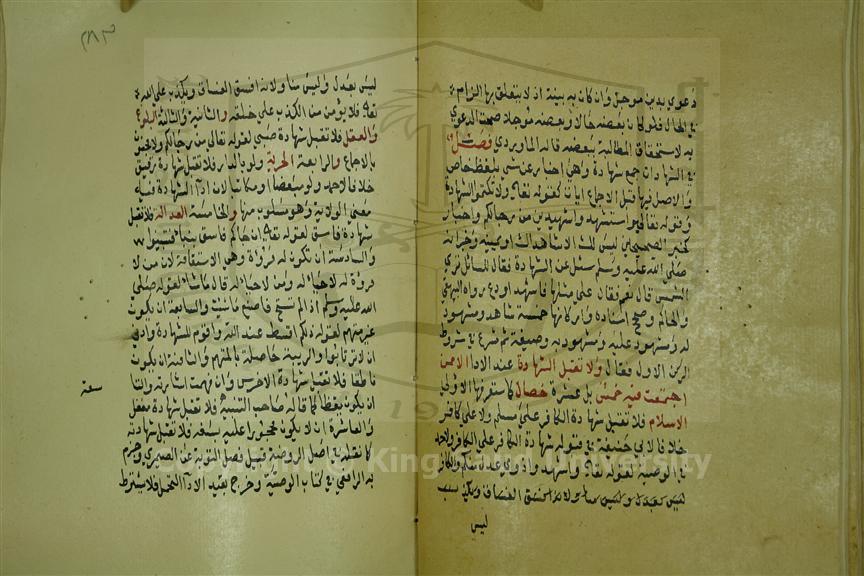 دعوي بدين موجل وان كان به بينة اذ لا يتعلق بها الزام
في الحال فلو كان بعضه حالا وبعضه موجلا صحت الدعوي
به لاستحقاق المطالبة ببعضه قاله الماوردي فصل
في الشهادات جمع شهادة وهي اخبار عن شي بلفظ خاص
والاصل فيها قبل الاجماع ايات كقوله تعالي ولا تكتموا الشهادة
وقوله تعالي واستشهدوا شهيدين من رجالكم واخبار
كخبر الصحيحين ليس لك الا شاهداك او يمينه وخبر انه
صلي الله عليه وسلم سئل عن الشهادة فقال للسائل تري
الشمس قال نعم فقال علي مثلها فاشهد او دع رواه البيهقي
والحاكم وصحح اسناده واركانها خمسة شاهد ومشهود
له ومشهود عليه ومشهود به وصيغة ثم شرع في شروط
الركن الاول فقال ولا تقبل الشهادة عند الادا الا ممن
اجتمعت فيه خمس بل عشرة خصال كما ستعرفها الاولي
الاسلام فلا تقبل شهادة الكافر علي مسلم ولا علي كافر
خلافا لابي حنيفة في قبوله شهادة الكافر علي الكافر ولاحمد
في الوصية لقوله تعالي واشهدوا ذوي عدل منكم والكافر
ليس بعدل وليس منا ولانه افسق الفساق ويكذب
ليس
٢٨٣
ليس بعدل وليس منا ولانه افسق الفساق ويكذب علي الله
تعالي فلا يؤمن من الكذب علي خلقه والثانية والثالثة البلوغ
والعقل فلا تقبل شهادة صبي لقوله تعالي من رجالكم ولا مجنون
بالاجماع والرابعة الحرية ولو بالدار فلا تقبل شهادة رقيق
خلافا لاحمد ولو مبعضا او مكاتبا لان ادا الشهادة فيه
معني الولاية وهو مسلوب منها والخامسة العدالة فلا تقبل
شهادة فاسق لقوله تعالي ان جاكم فاسق بنبا فتبينوا
والسادسة ان تكون له مروة وهي الاستقامة لان من لا
مروة له لا حيا له ومن لا حيا له قال ما شا لقوله صلي
الله عليه وسلم اذا لم تستح فاصنع ما شئت والسابعة ان يكون
غير متهم لقوله ذلكم اقسط عند الله واقوم للشهادة وادني
ان لا ترتابوا والريبة حاصلة بالمتهم والثامنة ان يكون
ناطقا فلا تقبل شهادة الاخرس وان فهمت اشارته والتا
سعة
ان يكون يقظا كما قاله صاحب التنبيه فلا تقبل شهادة مغفل
والعاشرة ان لا يكون محجورا عليه بسفه فلا تقبل شهادته
كما نقله في اصل الروضة قبيل فصل التوبة عن الصيمري وجزم
به الرافعي في كتاب الوصية وخرج بقيد الادا التحمل فلا يشترط
Copyright © King Saud University